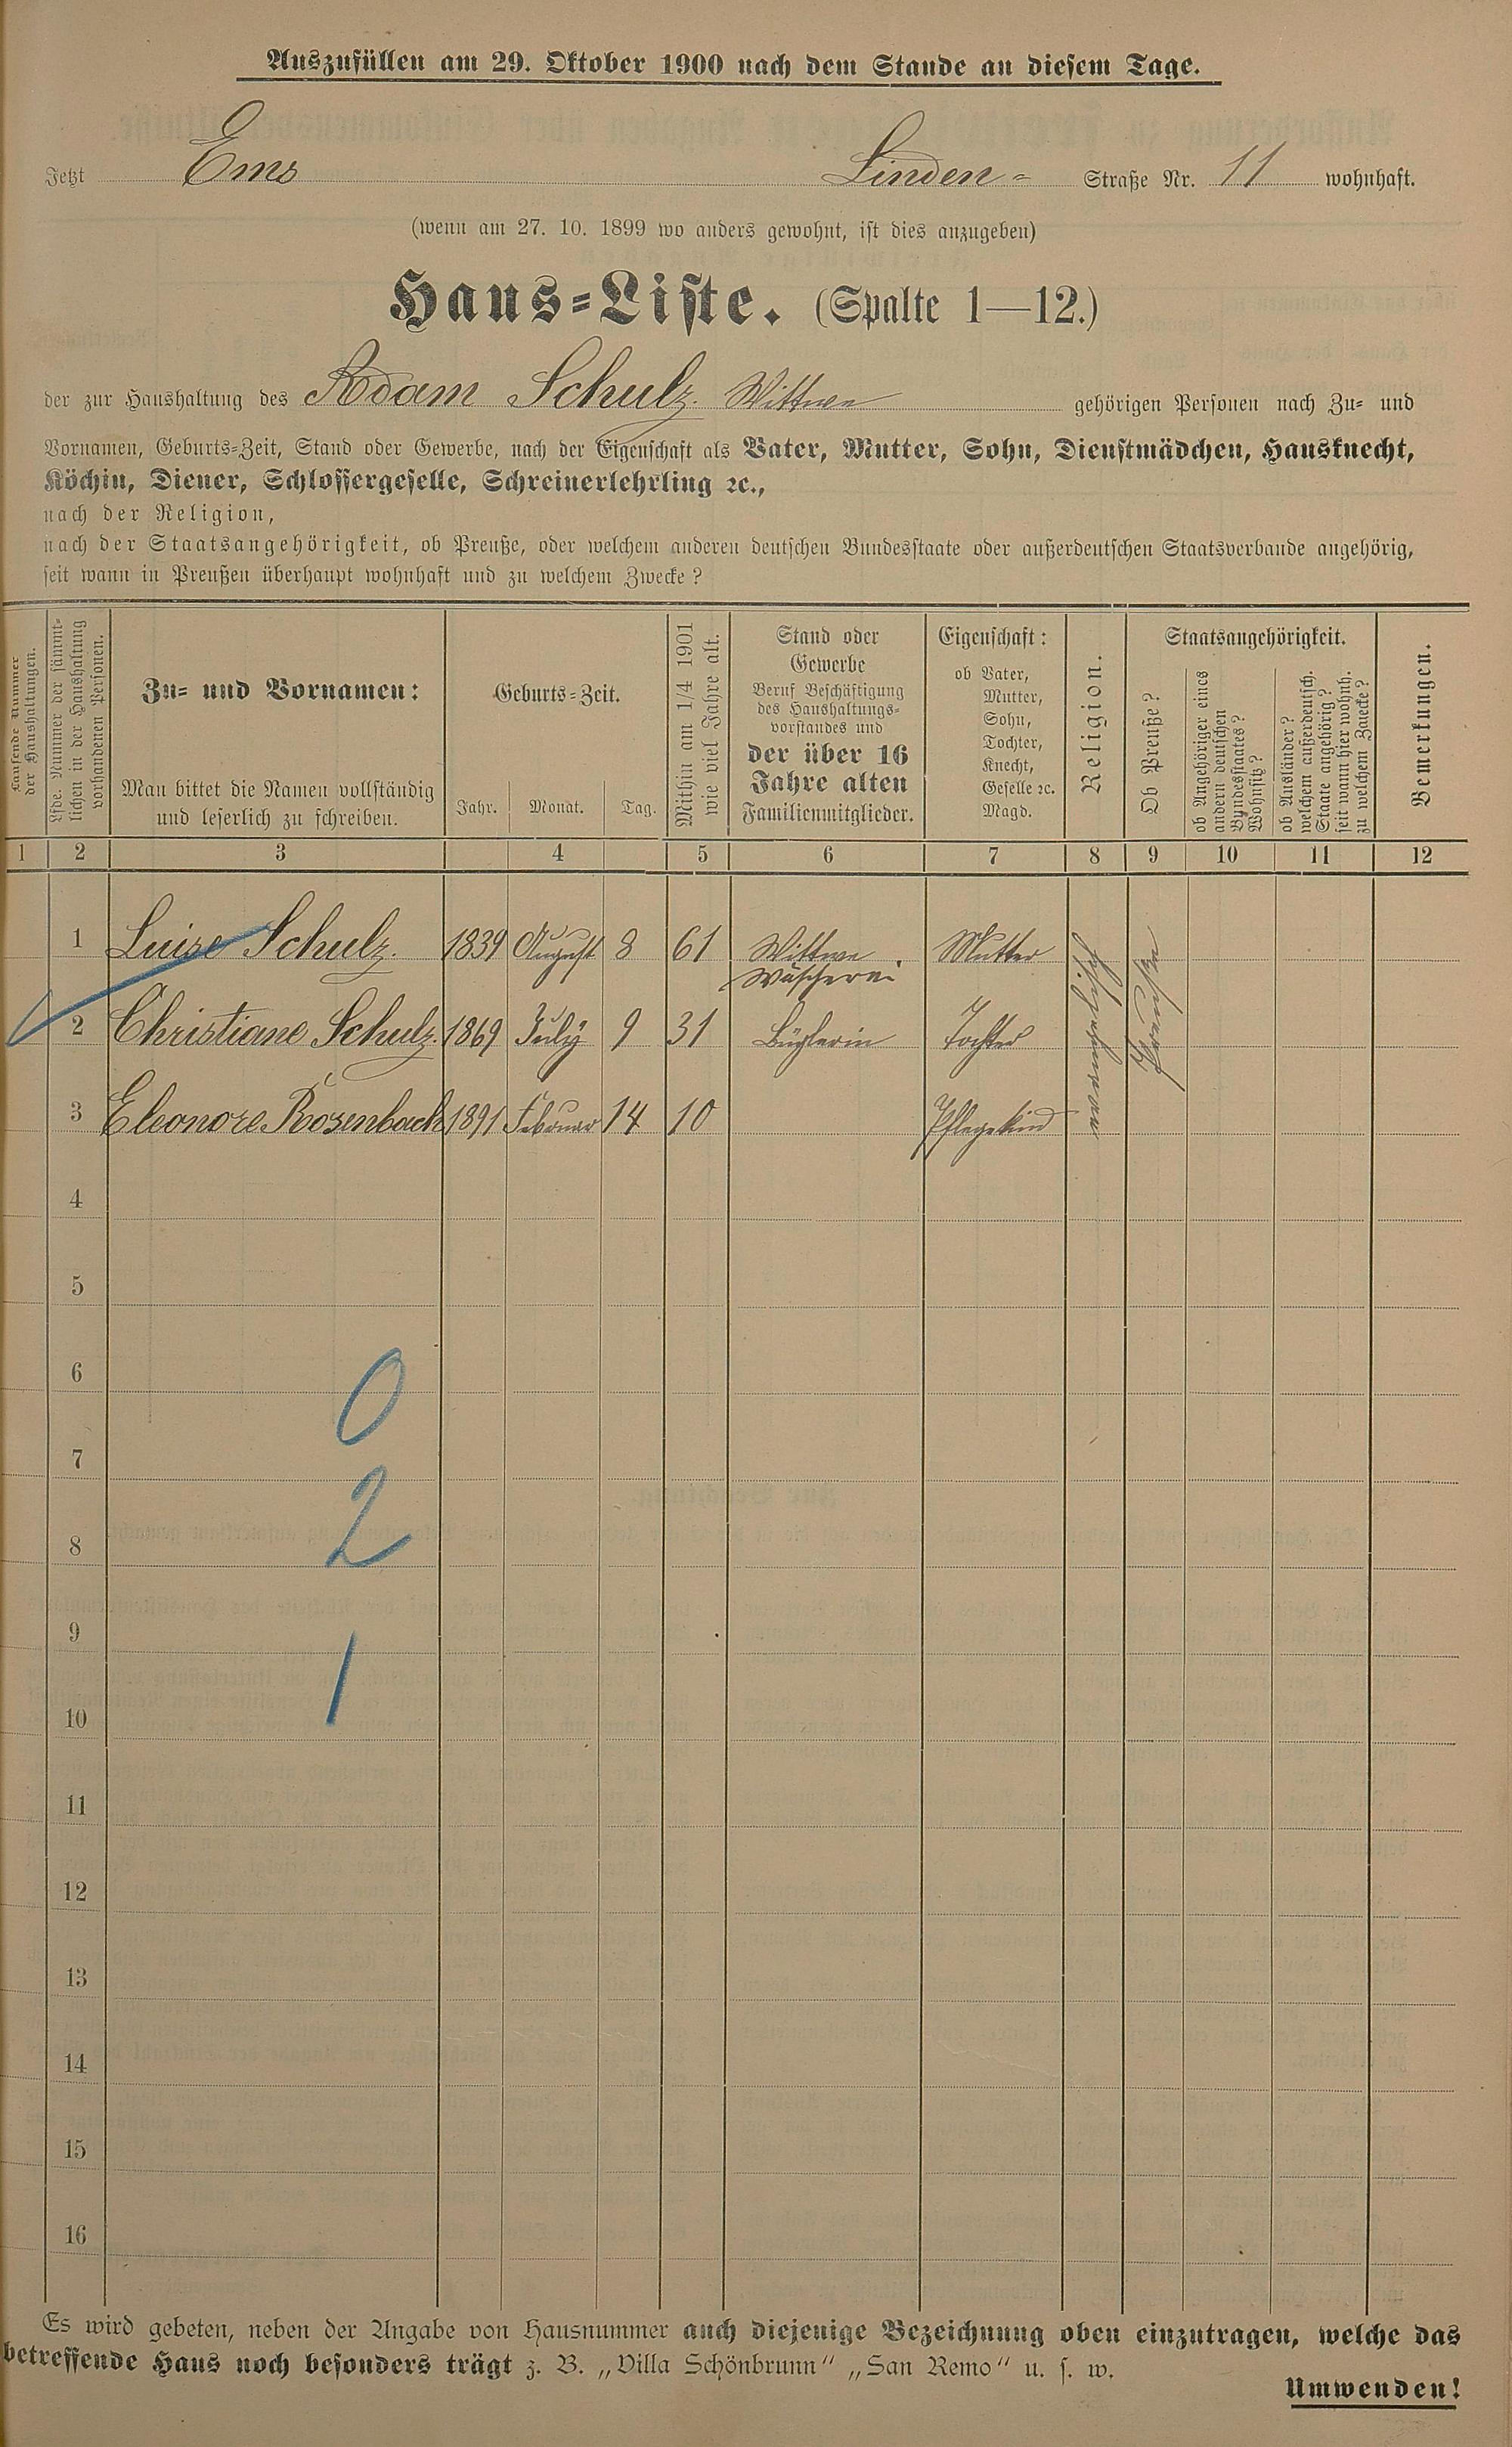 Auszufüllen am 29. Oktober 1900 nach dem Stande an diesem Tage.
Jetzt Ems Linden- Straße Nr. 11 wohnhaft.
(wenn am 27. 10. 1899 wo anders gewohnt, ist dies anzugeben)
Haus-Liste. (Spalte 1—12.)
der zur Haushaltung des Adam Schulz. Wittwe gehörigen Personen nach Zu- und
Vornamen, Geburts-Zeit, Stand oder Gewerbe, nach der Eigenschaft als Vater, Mutter, Sohn, Dienstmädchen, Hausknecht,
Köchin, Diener, Schlossergeselle, Schreinerlehrling ꝛc.,
nach der Religion,
nach der Staatsangehörigkeit, ob Preuße, oder welchem anderen deutschen Bundesstaate oder außerdeutschen Staatsverbande angehörig,
seit wann in Preußen überhaupt wohnhaft und zu welchem Zwecke?
Laufende Nummer
der Haushaltungen.
Lfde. Nummer der sämmt-
lichen in der Haushaltung
vorhandenen Personen.
Zu- und Vornamen:
Man bittet die Namen vollständig
und leserlich zu schreiben.
Geburts-Zeit.
Jahr. Monat. Tag.
Mithin am 1/4 1901
wie viel Jahre alt.
Stand oder
Gewerbe
Beruf Beschäftigung
des Haushaltungs-
vorstandes und
der über 16
Jahre alten
Familienmitglieder.
Eigenschaft:
ob Vater,
Mutter,
Sohn,
Tochter,
Knecht,
Geselle ꝛc.
Magd.
Religion.
Staatsangehörigkeit.
Ob Preuße?
ob Angehöriger eines
andern deutschen
Bundesstaates?
Wohnsitz?
ob Ausländer?
welchem außerdeutsch.
Staate angehörig?
seit wann hier wohnh.
zu welchem Zwecke?
Bemerkungen.
1 2 3 4 5 6 7 8 9 10 11 12
1 Luise Schulz. 1839 August 8 61 Wittwe Mutter
Wäscherei
2 Christiane Schulz. 1869 July 9 31 Büglerin Tochter
3 Eleonore Rosenbach 1891 Februar 14 10 Pflegekind
4
5
6
0
7
2
8
9
1
10
11
12
13
14
15
16
Es wird gebeten, neben der Angabe von Hausnummer auch diejenige Bezeichnung oben einzutragen, welche das
betreffende Haus noch besonders trägt z. B. „Villa Schönbrunn“ „San Remo“ u. s. w.
Umwenden!